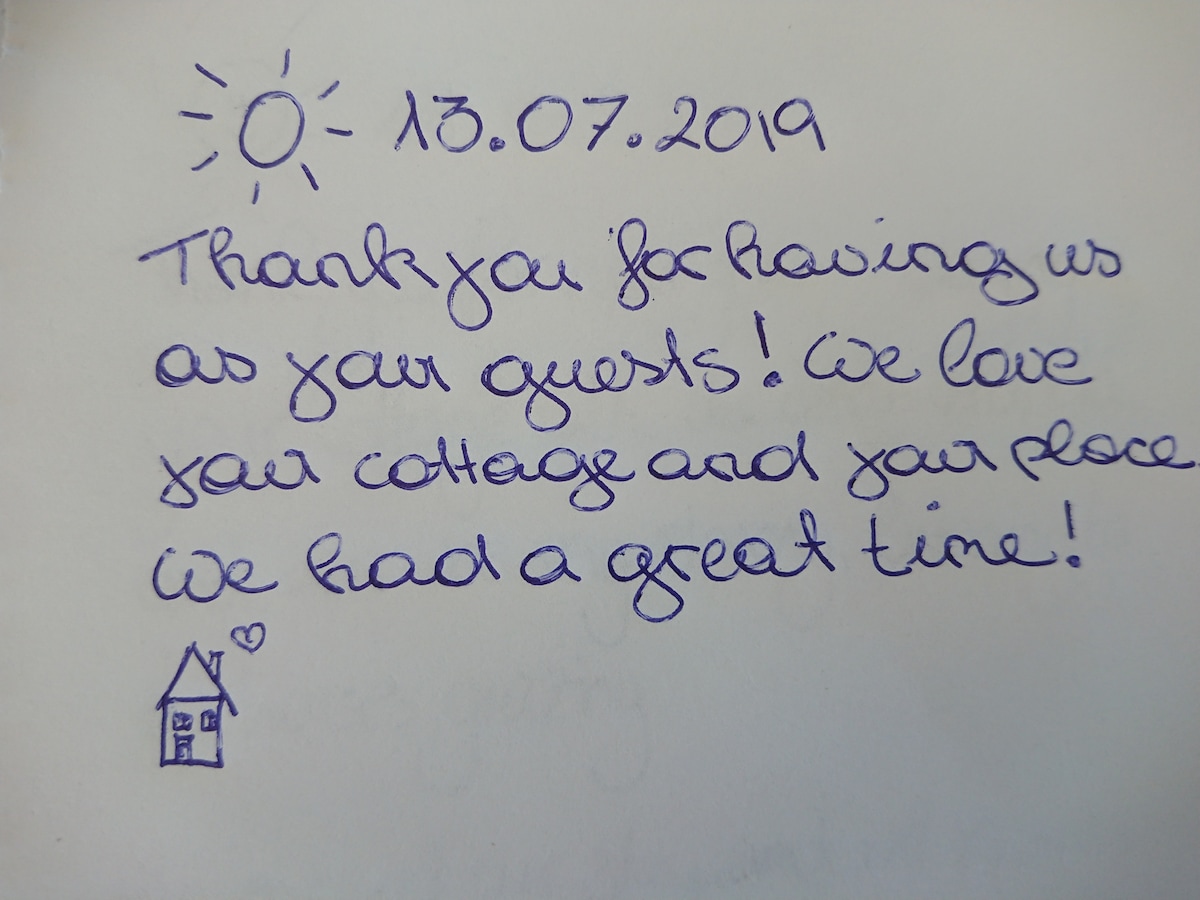 13.07.2019
Thank you for having us
as your guests! We love
your cottage and your place
We had a great time!